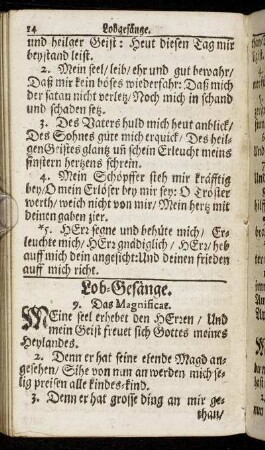 14 Lobgesänge.
und heilger Geist: Heut diesen Tag mir
beystand leist.
2. Mein seel/ leib/ ehr und gut bewahr/
Daß mir kein böses wiederfahr: Daß mich
der satan nicht verletz/ Noch mich in schand
und schaden setz.
3. Des Vaters huld mich heut anblick/
Des Sohnes güte mich erquick/ Des heil-
gen Geistes glantz uñ schein Erleucht meins
finstern hertzens schrein.
4. Mein Schöpffer steh mir kräfftig
bey/ O mein Erlöser bey mir sey: O Tröster
werth/ weich nicht von mir/ Mein hertz mit
deinen gaben zier.
*5. HErr segne und behüte mich/ Er-
leuchte mich/ HErr gnädiglich/ HErr/ heb
auff mich dein angesicht: Und deinen frieden
auff mich richt.
Lob-Gesänge.
9. Das Magnificat.
MEine seel erhebet den HErren/ Und
mein Geist freuet sich Gottes meines
Heylandes.
2. Denn er hat seine elende Magd an-
gesehen/ Sihe von nun an werden mich se-
lig preisen alle kindes-kind.
3. Denn er hat grosse ding an mir ge-
than/